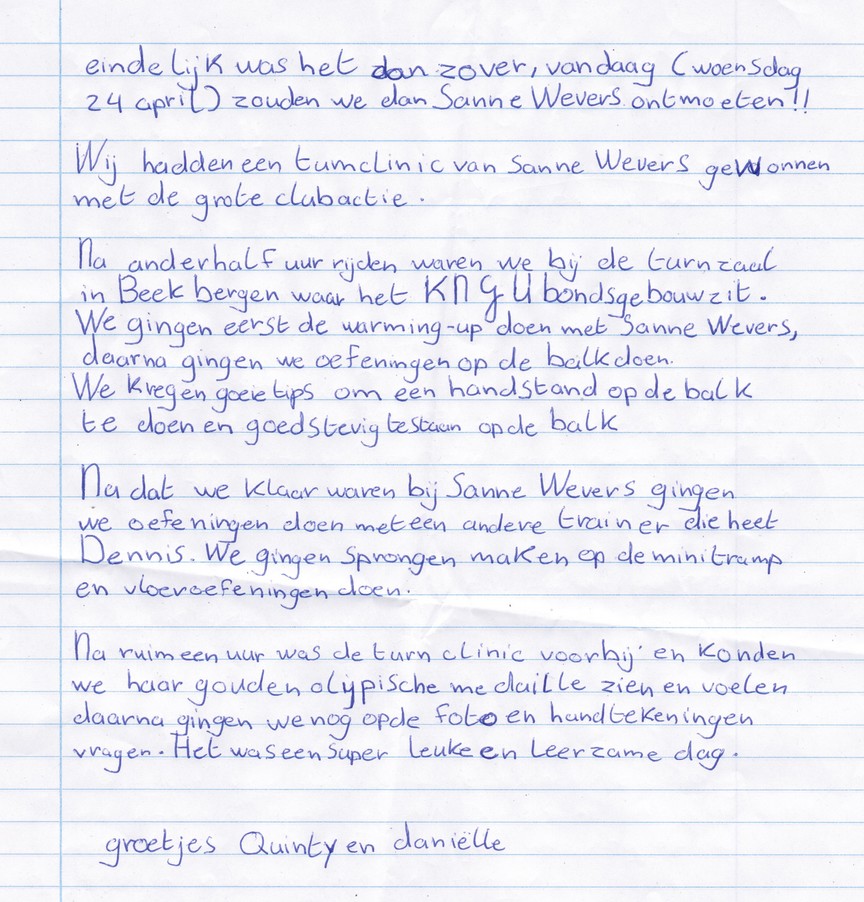 eindelijk was het dan zover, vandaag (woensdag
24 april) zouden we dan Sanne Wevers ontmoeten!!
Wij hadden een turnclinic van Sanne Wevers gewonnen
met de grote clubactie.
Na anderhalf uur rijden waren we bij de turnzaal
in Beekbergen waar het KNGU bondsgebouw zit.
We gingen eerst de warming-up doen met Sanne Wevers,
daarna gingen we oefeningen op de balk doen.
We kregen goeie tips om een handstand op de balk
te doen en goed stevig te staan op de balk
Na dat we klaar waren bij Sanne Wevers gingen
we oefeningen doen met een andere trainer die heet
Dennis. We gingen sprongen maken op de minitramp
en vloeroefeningen doen.
Na ruim een uur was de turnclinic voorbij en konden
we haar gouden olypische medaille zien en voelen
daarna gingen we nog op de foto en handtekeningen
vragen. Het was een super leuke en leerzame dag.
groetjes Quinty en daniëlle